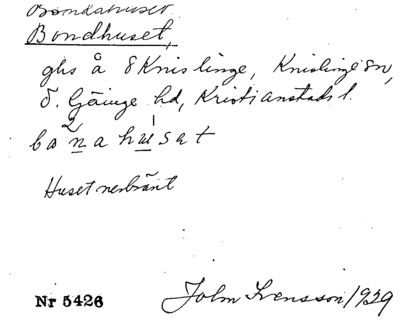 Bondahuset
Bondhuset,
ghs å ö Knislinge, Knislinge sn,
Ö. Göinge hd, Kristianstads l.
bonahusat
Huset nerbränt
Nr 5426 John Svensson 1929